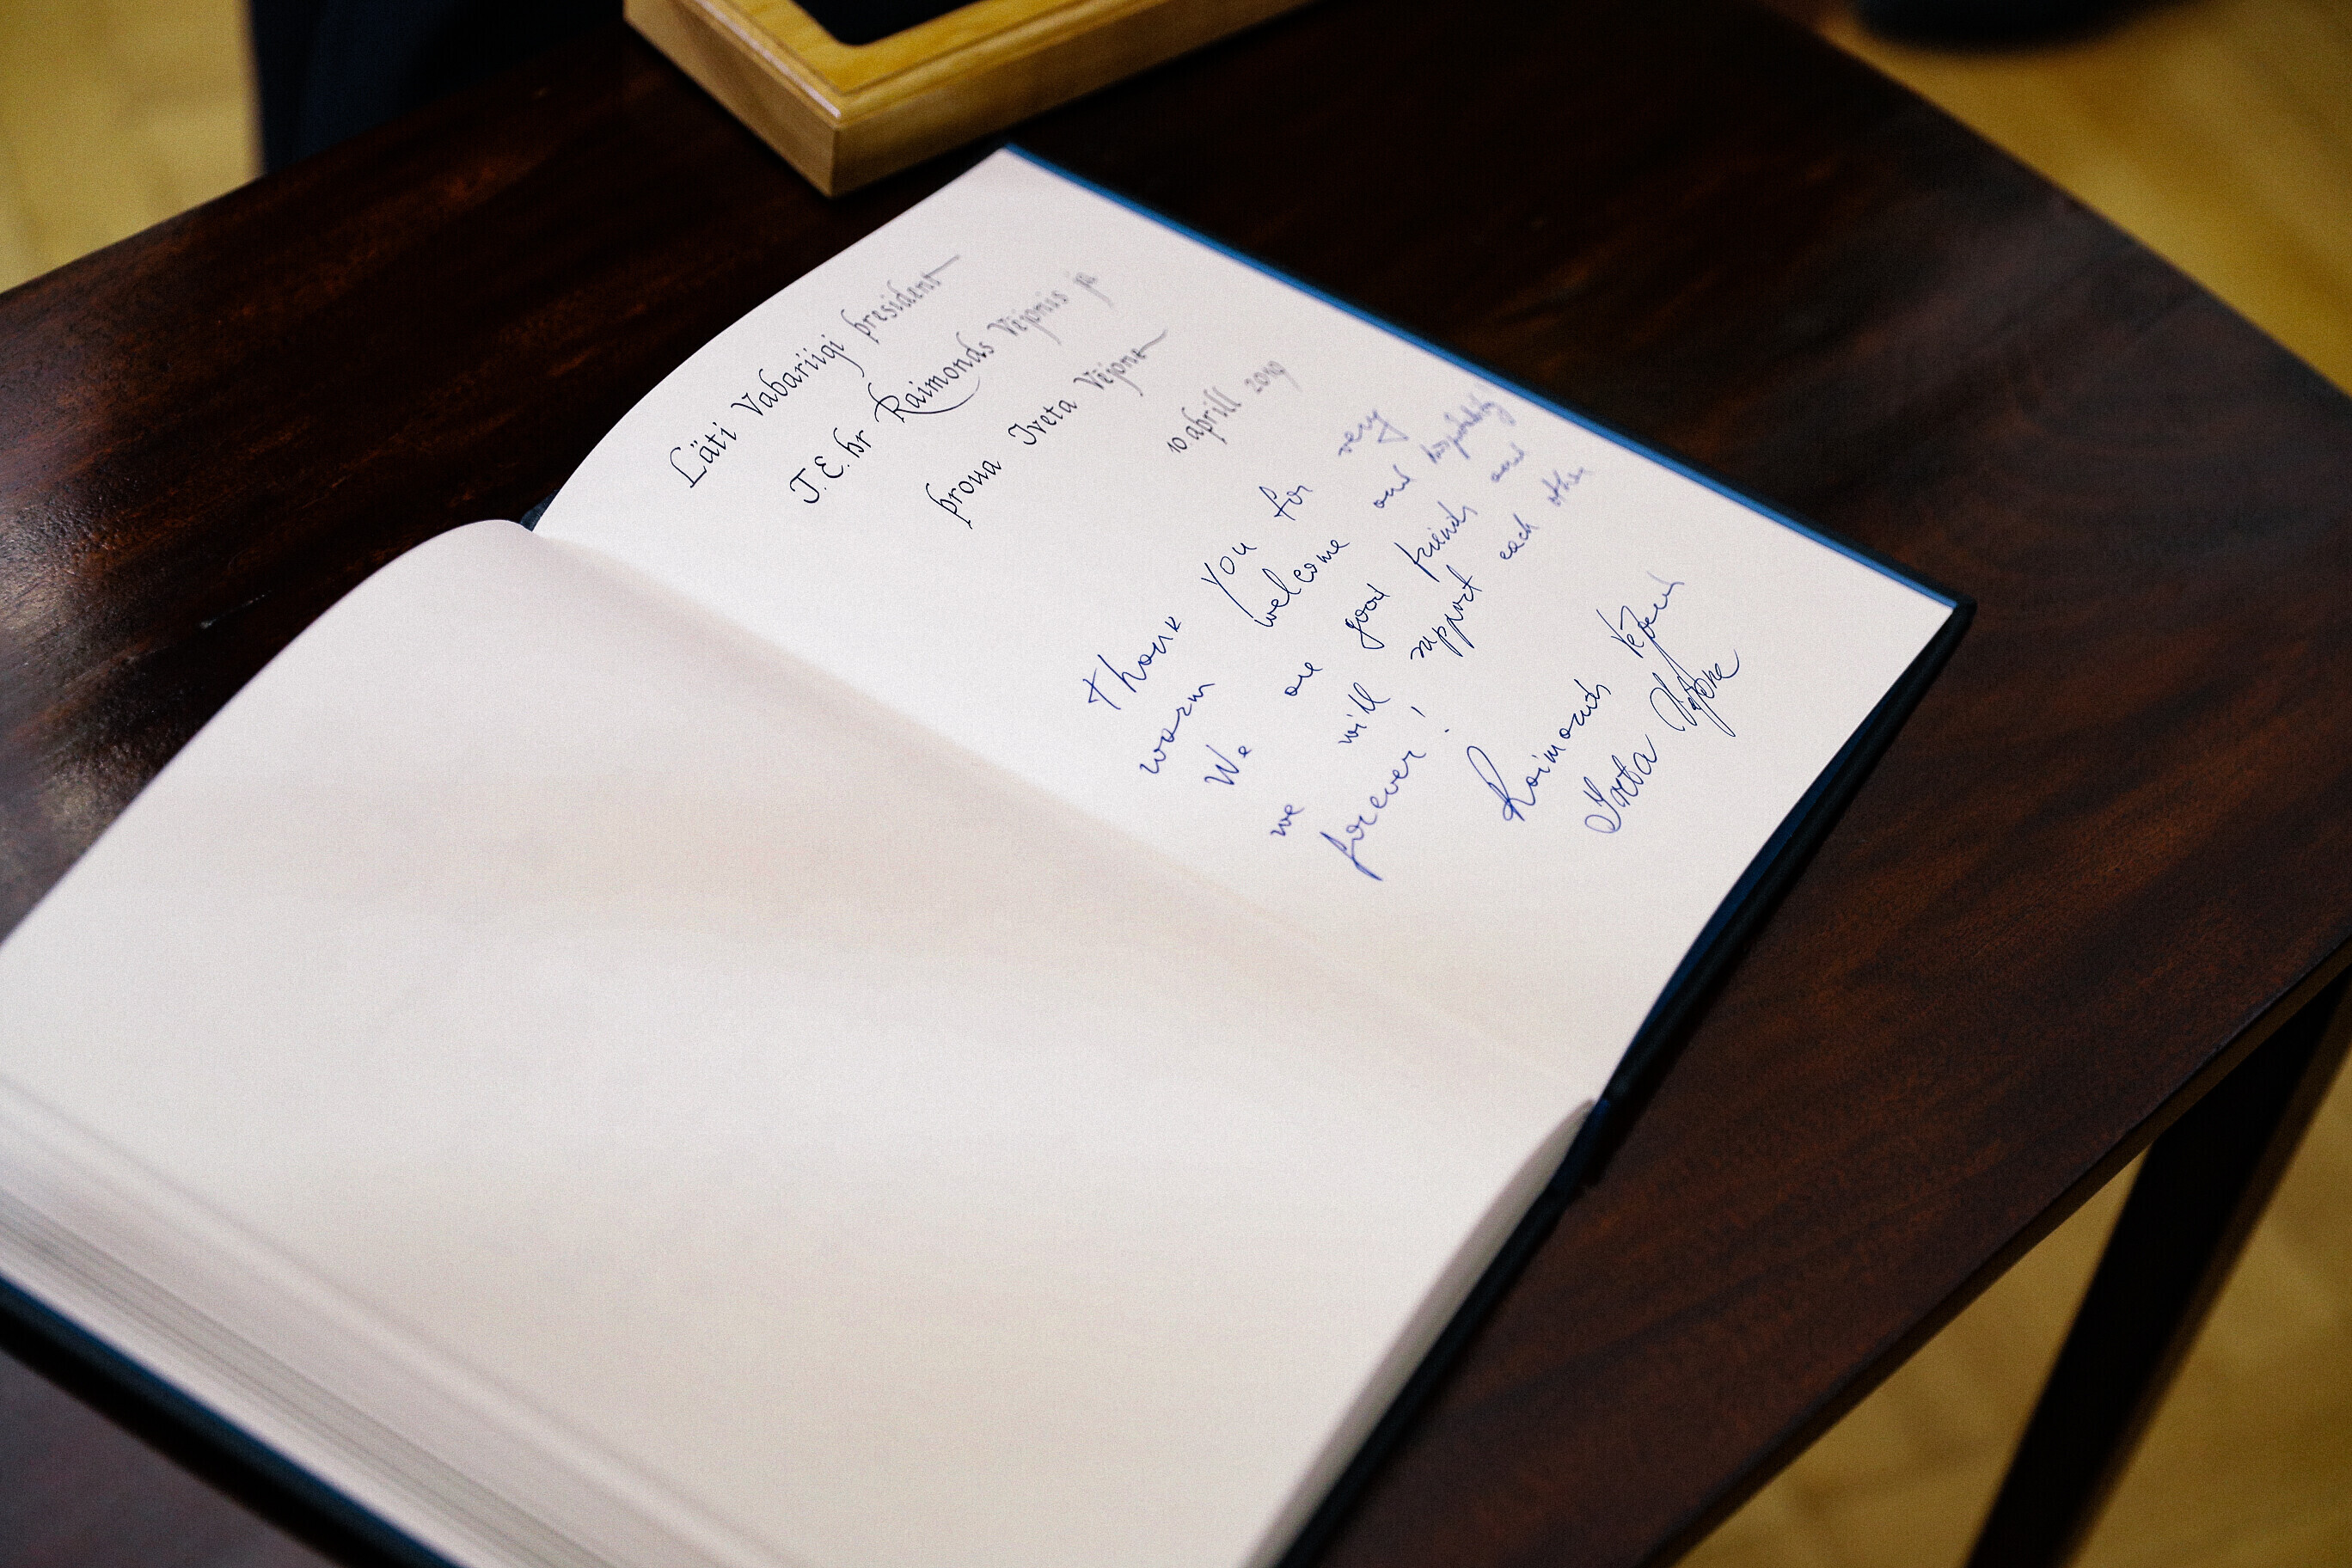 Läti Vabariigi president
T.E. hr Raimonds Vējonis ja
proua Iveta Vējone
10. aprill 2019
Thank you for very
warm welcome and hospitality
We are good friends and
we will support each other
forever!
Raimonds Vējonis
Iveta Vējone